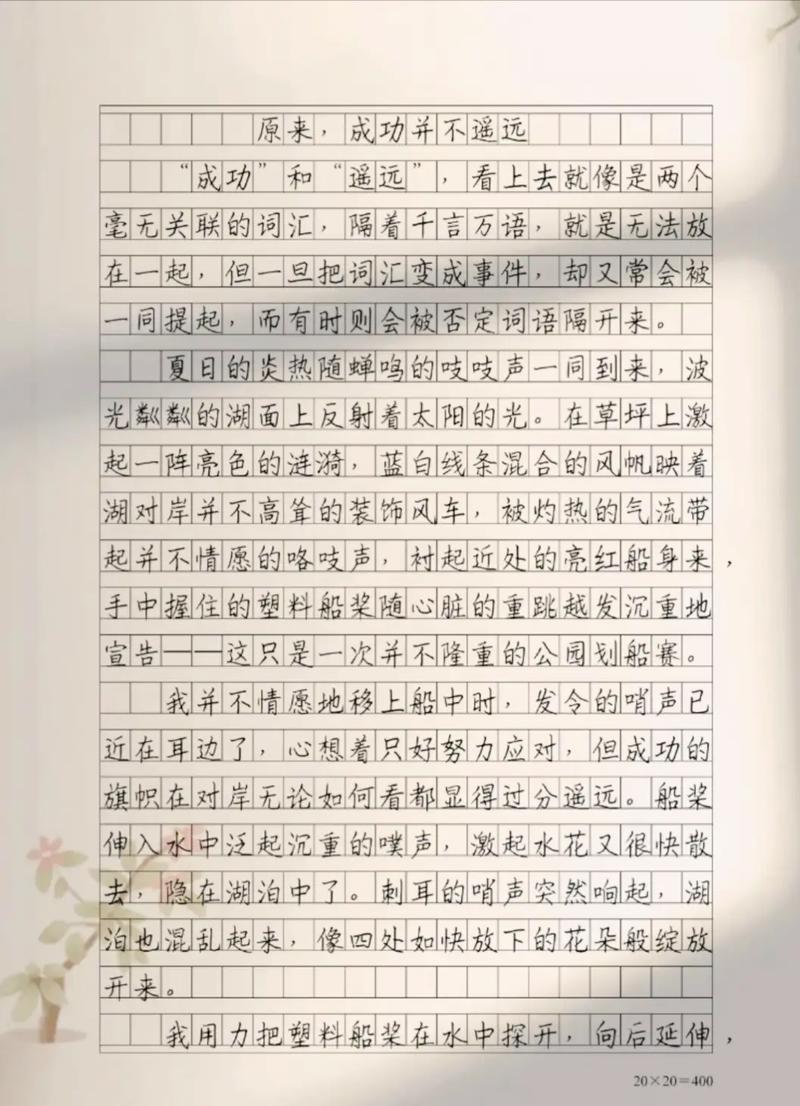 原来，成功并不遥远
“成功”和“遥远”，看上去就像是两个
毫无关联的词汇，隔着千言万语，就是无法放
在一起，但一旦把词汇变成事件，却又常会被
一同提起，而有时则会被否定词语隔开来。
夏日的炎热随蝉鸣的吱吱声一同到来，波
光粼粼的湖面上反射着太阳的光。在草坪上激
起一阵亮色的涟漪，蓝白线条混合的风帆映着
湖对岸并不高耸的装饰风车，被灼热的气流带
起并不情愿的咯吱声，衬起近处的亮红船身来，
手中握住的塑料船桨随心脏的重跳越发沉重地
宣告——这只是一次并不隆重的公园划船赛。
我并不情愿地移上船中时，发令的哨声已
近在耳边了，心想着只好努力应对，但成功的
旗帜在对岸无论如何看都显得过分遥远。船桨
伸入水中泛起沉重的噗声，激起水花又很快散
去，隐在湖泊中了。刺耳的哨声突然响起，湖
泊也混乱起来，像四处如快放下的花朵般绽放
开来。
我用力把塑料船桨在水中探开，向后延伸，
20×20=400